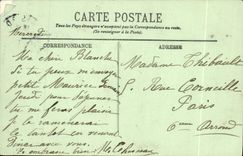 CARTE POSTALE
Tous les pays étrangers n'acceptent pas la correspondance au recto
(Se renseigner à la Poste)
Mercredi
CORRESPONDANCE
ADRESSE
Ma chère Blanche
Si tu peux m'envoyer
petit Maurice
Jeudi pour
tu me feras plaisir
je le ramènerai
le lundi en venant
avec vous.
Madame Thebault
5 Rue Corneille
Paris
6ème Arrond